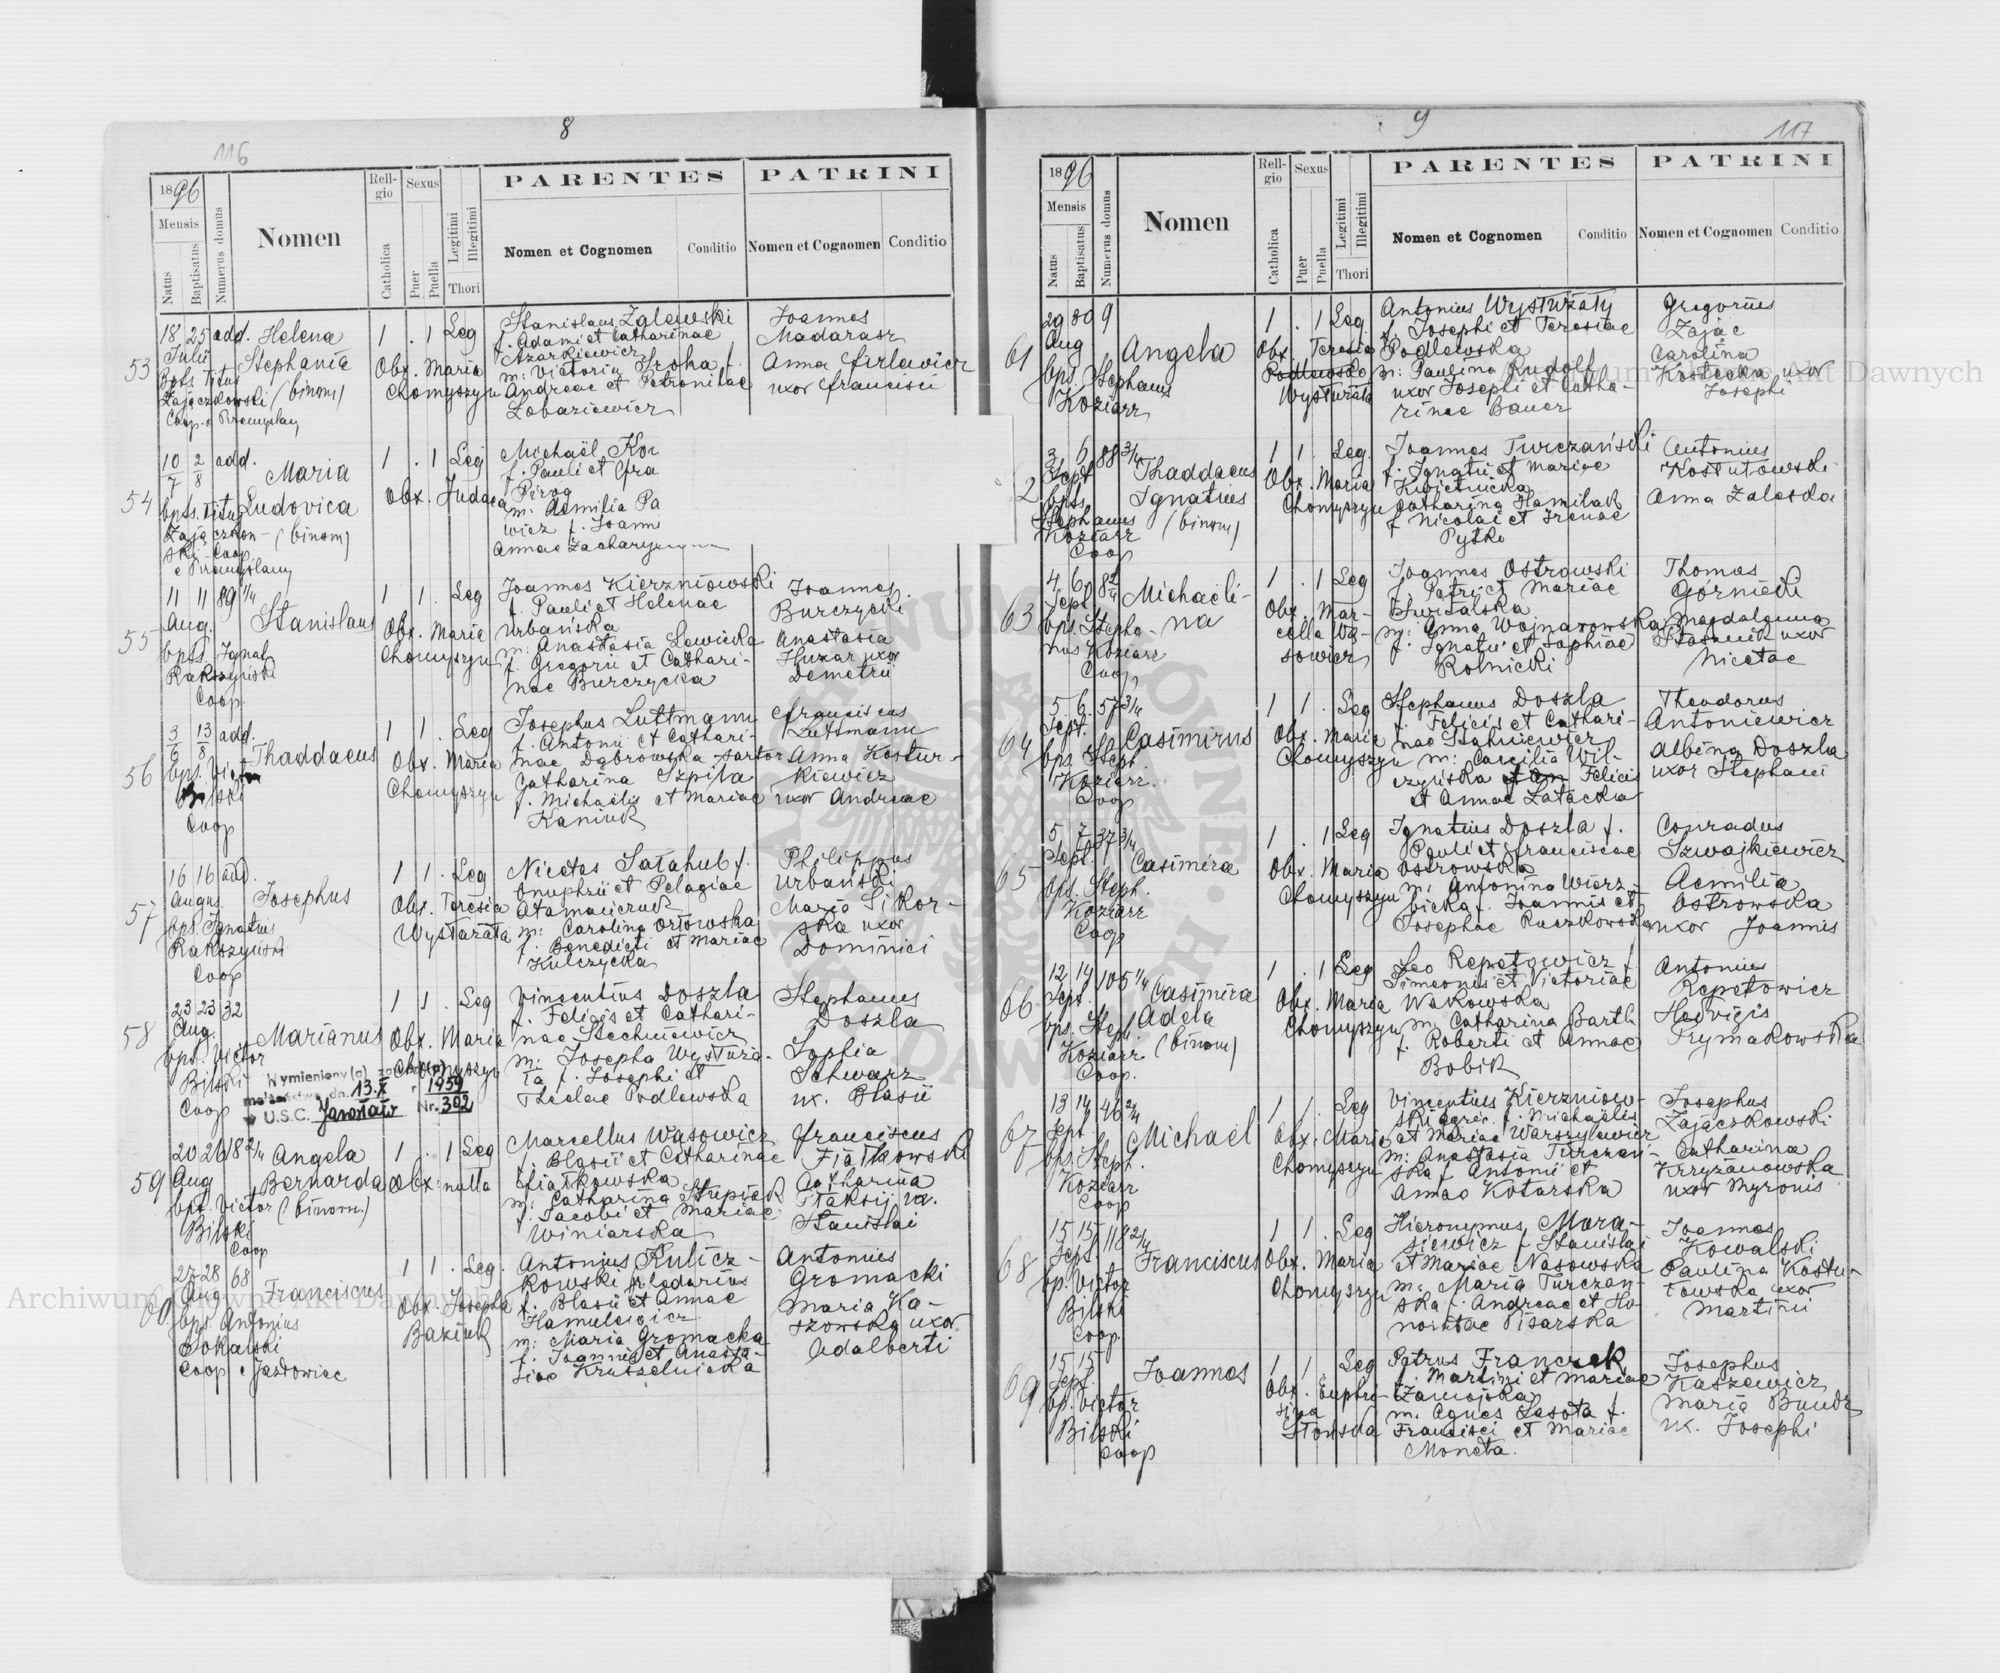 8
116
1896
Mensis
Natus
Baptisatus
Numerus domus
Nomen
Religio
Catholica
Sexus
Puer
Puella
Legitimi
Illegitimi
Thori
PARENTES
Nomen et Cognomen
Conditio
PATRINI
Nomen et Cognomen
Conditio
53
18 25 add. Helena 1 . 1 Leg Stanislaus Zalewski Joannes
Julii Stephania f. Adami et Catharinae Madarasz
bpts. Titus (binom) Obx. Maria m: Victoria Sroka f. Anna
Zajączkowski Chomyszyn Andreae et Petronilae uxor Francisci
Coop. e Przemyślany
54
10/7 2/8 add. Maria Ludovica (binom) 1 . 1 Leg Michaël
bpts. Titus Obx. Judaea f. Pauli et Fra
Zajączkow- Pirog
ski Coop m. Aemilia Pa
e Przemyślany wicz f. Joann
Annae
55
11 11 89 1/4 Stanislaus 1 1 . Leg Joannes Kierzniowski Joannes
Aug. f. Pauli et Helenae Burczycki
bpts. Ignat Obx. Maria Urbańska Anastasia
Rakszyński Chomyszyn m: Anastasia Sawicka Huzar uxor
Coop f. Gregorii et Cathari- Demetrii
nae Burczycka
56
3/6 13/8 add. Thaddaeus 1 1 . Leg Josephus Luttmann Franciscus
f. Antonii et Cathari- Luttmann
bpt. Victor Obx. Maria nae Dąbrowska - sartor Anna Kostur-
Bilski Chomyszyn Catharina Szpiła kiewicz
Coop f. Michaëlis et Mariae uxor Andreae
Kaniuk
57
16 16 add. Josephus 1 1 . Leg Nicetas Sałahub f. Philippus
August Onuphrii et Pelagiae Urbański
bpt. Ignatius Obx. Teresia Atamańczuk Maria Sikor-
Rakszyński Wysturzata m: Carolina Orłowska ska uxor
Coop f. Benedicti et Mariae Dominici
Kulczycka
58
23 23 32 Marianus 1 1 . Leg Vincentius Doszla Stephanus
Aug. f. Felicis et Cathari- Doszla
bpt. Victor Obx. Maria nae Stechniewicz Sophia
Bilski Chomyszyn m: Josepha Schwarz
Coop f. Josephi et ux. Blasii
Theclae Podlewska
Wymieniony(a) zawarł(a)
małżeństwo dn. 13.X 1959
w U.S.C. Jarosław Nr. 302
59
20 26 18 2/4 Angela 1 . 1 Leg Marcellus Wąsowicz Franciscus
Aug Bernarda Obx: nulla f. Blasii et Catharinae Fiałkowski
bpt. Victor (binom.) Fiałkowska Catharina
Bilski m: Catharina Stupiak Ptaksij ux.
Coop f. Jacobi et Mariae Stanislai
Winiarska
60
27 28 68 Franciscus 1 1 . Leg. Antonius Kulicz- Antonius
Aug kowski Gromacki
bpt. Antonius Obx. Josepha f. Blasii et Annae Maria Ka-
Sokalski Baziuk Hamulewicz szowska uxor
Coop e Jazłowiec m: Maria Gromacka Adalberti
f. Joannis et Anasta-
siae Kruszelnicka
9
117
1896
Mensis
Natus
Baptisatus
Numerus domus
Nomen
Religio
Catholica
Sexus
Puer
Puella
Legitimi
Illegitimi
Thori
PARENTES
Nomen et Cognomen
Conditio
PATRINI
Nomen et Cognomen
Conditio
61
29 30 9 Angela 1 . 1 Leg Antonius Gregorius
Aug f. Josephi et Teresiae Zając
bpt. Stephanus Obx. Teresia Podlewska Carolina
Koziarz m: Paulina Rudolf Kostecka uxor
uxor Josephi et Catha- Josephi
rinae Bauer
2
3 6 88 3/4 Thaddaeus 1 1 . Leg. Joannes Turczański Antonius
Sept Ignatius f. Ignatii et Mariae Kostutowski
bpts. (binom) Obx. Maria Kwietnicka Anna Zaleska
Stephanus Chomyszyn Catharina Hamilak
Koziarz f. Nicolai et Irenae
Coop Pytko
63
4 6 8 2/4 Michaeli- 1 . 1 Leg Joannes Ostrowski Thomas
Sept na f. Petri et Mariae Górnicki
bpt. Stepha- Obx. Mar- Świtalska Magdalena
nus Koziarz cella Wą- m: Anna Wojnarowska Stasenik uxor
Coop sowicz f. Ignatii et Sophiae Nicetae
Rolnicki
64
5 6 57 3/4 Casimirus 1 1 . Leg Stephanus Doszla Theodorus
Sept. f. Felicis et Cathari- Antoniewicz
bpt. Steph. Obx. Maria nae Stahniewicz Albina Doszla
Koziarz Chomyszyn m: Caecilia Wil- uxor Stephani
Coop czyńska Felicis
et Annae Latacka
65
5 7 37 3/4 Casimira 1 . 1 Leg Ignatius Doszla f. Conradus
Sept. Pauli et Franciscae Szwajkiewicz
bpt. Steph. Obx. Maria Ostrowska Aemilia
Koziarz Chomyszyn m: Antonina Wierz- Ostrowska
Coop bicka f. Joannis et uxor Joannis
Josephae Raczkowska
66
12 14 105 1/4 Casimira 1 . 1 Leg Leo Repetowicz f. Antonius
Sept. Adela Simeonis et Victoriae Repetowicz
bpt. Steph. (binom) Obx. Maria Wakowska Hedvigis
Koziarz Chomyszyn m: Catharina Barth Frymakowska
Coop. f. Roberti et Annae
Bobik
67
13 14 46 2/4 Michaël 1 1 . Leg Vincentius Kierzniow- Josephus
Sept. ski agric. f. Michaëlis Zajączkowski
bpt. Steph. Obx. Maria et Mariae Warszylewicz Catharina
Koziarz Chomyszyn m: Anastasia Turczań- Krzyżanowska
Coop ska f. Antonii et uxor Myronis
Annae Kotarska
68
15 15 118 2/4 Franciscus 1 1 . Leg Hieronymus Mora- Joannes
Sept siewicz f. Stanislai Kowalski
bp. Victor Obx. Maria et Mariae Nasowska Paulina Kostu-
Bilski Chomyszyn m: Maria Turczań- towska uxor
Coop. ska f. Andreae et Ho- Martini
noratae Pisarska
69
15 15 Joannes 1 1 . Leg Petrus Franczak Josephus
Sept. f. Martini et Mariae Kaszewicz
bp. Victor Obx. Euphro- Zamojska Maria Bundz
Bilski sina m. Agnes Lasota f. ux. Josephi
Coop Słonska Francisci et Mariae
Moneta.
Archiwum Główne Akt Dawnych
Archiwum Główne Akt Dawnych